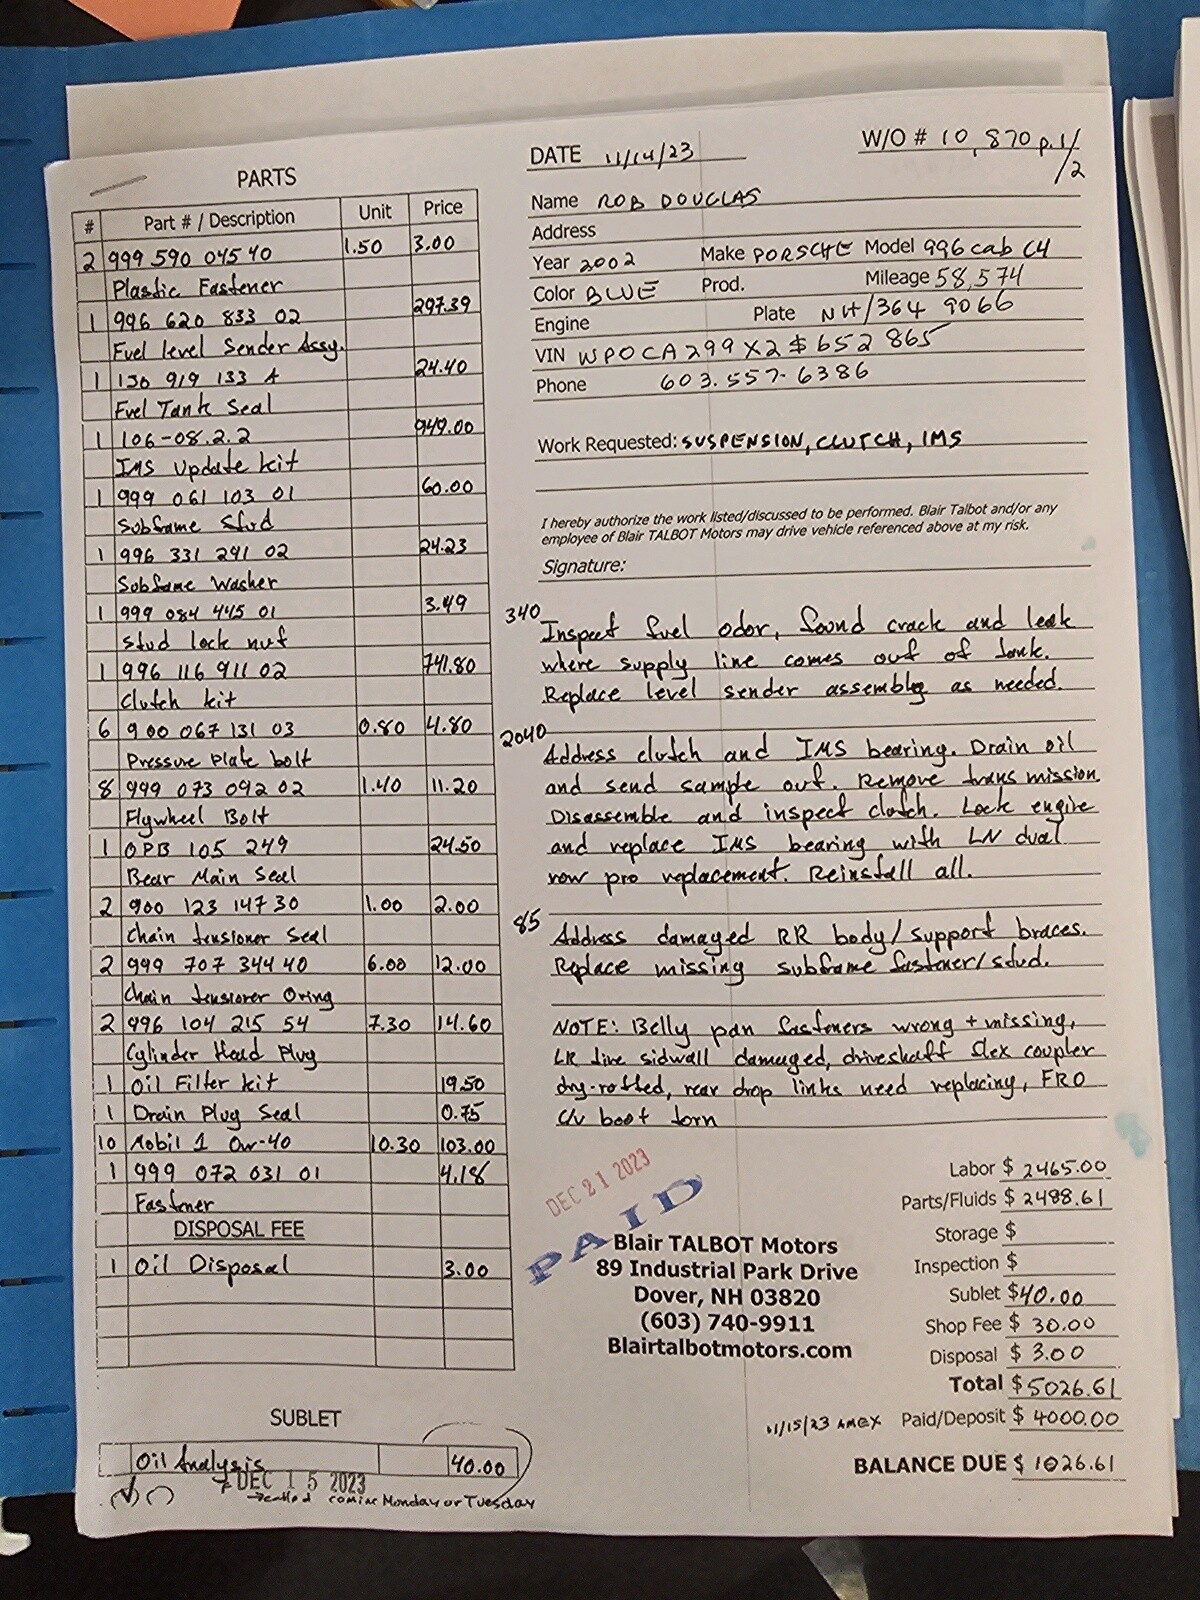 PARTS
# Part # / Description Unit Price
2 999 590 045 40 1.50 3.00
Plastic Fastener
1 996 620 833 02 297.39
Fuel level Sender Assy.
1 1J0 919 133 A 24.40
Fuel Tank Seal
1 106-08.2.2 949.00
IMS Update kit
1 999 061 103 01 60.00
Subframe Stud
1 996 331 291 02 24.23
Subframe Washer
1 999 084 445 01 3.49
Stud lock nut
1 996 116 911 02 741.80
Clutch kit
6 900 067 131 03 0.80 4.80
Pressure Plate bolt
8 999 073 092 02 1.40 11.20
Flywheel Bolt
1 OPB 105 249 24.50
Rear Main Seal
2 900 123 147 30 1.00 2.00
Chain tensioner Seal
2 999 707 344 40 6.00 12.00
Chain tensioner Oring
2 996 104 215 54 7.30 14.60
Cylinder Head Plug
1 Oil Filter kit 19.50
1 Drain Plug Seal 0.75
10 Mobil 1 0w-40 10.30 103.00
1 999 072 031 01 4.18
Fastener
DISPOSAL FEE
1 Oil Disposal 3.00
SUBLET
Oil Analysis 40.00
DEC 15 2023
→called coming Monday or Tuesday
DATE 11/14/23
W/O # 10,870 p.1/2
Name ROB DOUGLAS
Address
Year 2002 Make PORSCHE Model 996 cab C4
Color BLUE Prod. Mileage 58,574
Engine Plate NH/364 9066
VIN WP0CA299X2S652865
Phone 603.557-6386
Work Requested: SUSPENSION, CLUTCH, IMS
I hereby authorize the work listed/discussed to be performed. Blair Talbot and/or any
employee of Blair TALBOT Motors may drive vehicle referenced above at my risk.
Signature:
340 Inspect fuel odor, found crack and leak
where supply line comes out of tank.
Replace level sender assembly as needed.
2040 Address clutch and IMS bearing. Drain oil
and send sample out. Remove transmission
Disassemble and inspect clutch. Lock engine
and replace IMS bearing with LN dual
row pro replacement. Reinstall all.
85 Address damaged RR body/support braces.
Replace missing subframe fastener/stud.
NOTE: Belly pan fasteners wrong + missing,
LR tire sidwall damaged, driveshaft flex coupler
dry-rotted, rear drop links need replacing, FRO
c/v boot torn
DEC 21 2023
PAID
Blair TALBOT Motors
89 Industrial Park Drive
Dover, NH 03820
(603) 740-9911
Blairtalbotmotors.com
Labor $ 2465.00
Parts/Fluids $ 2488.61
Storage $
Inspection $
Sublet $40.00
Shop Fee $ 30.00
Disposal $ 3.00
Total $5026.61
11/15/23 AMEX Paid/Deposit $ 4000.00
BALANCE DUE $ 1026.61